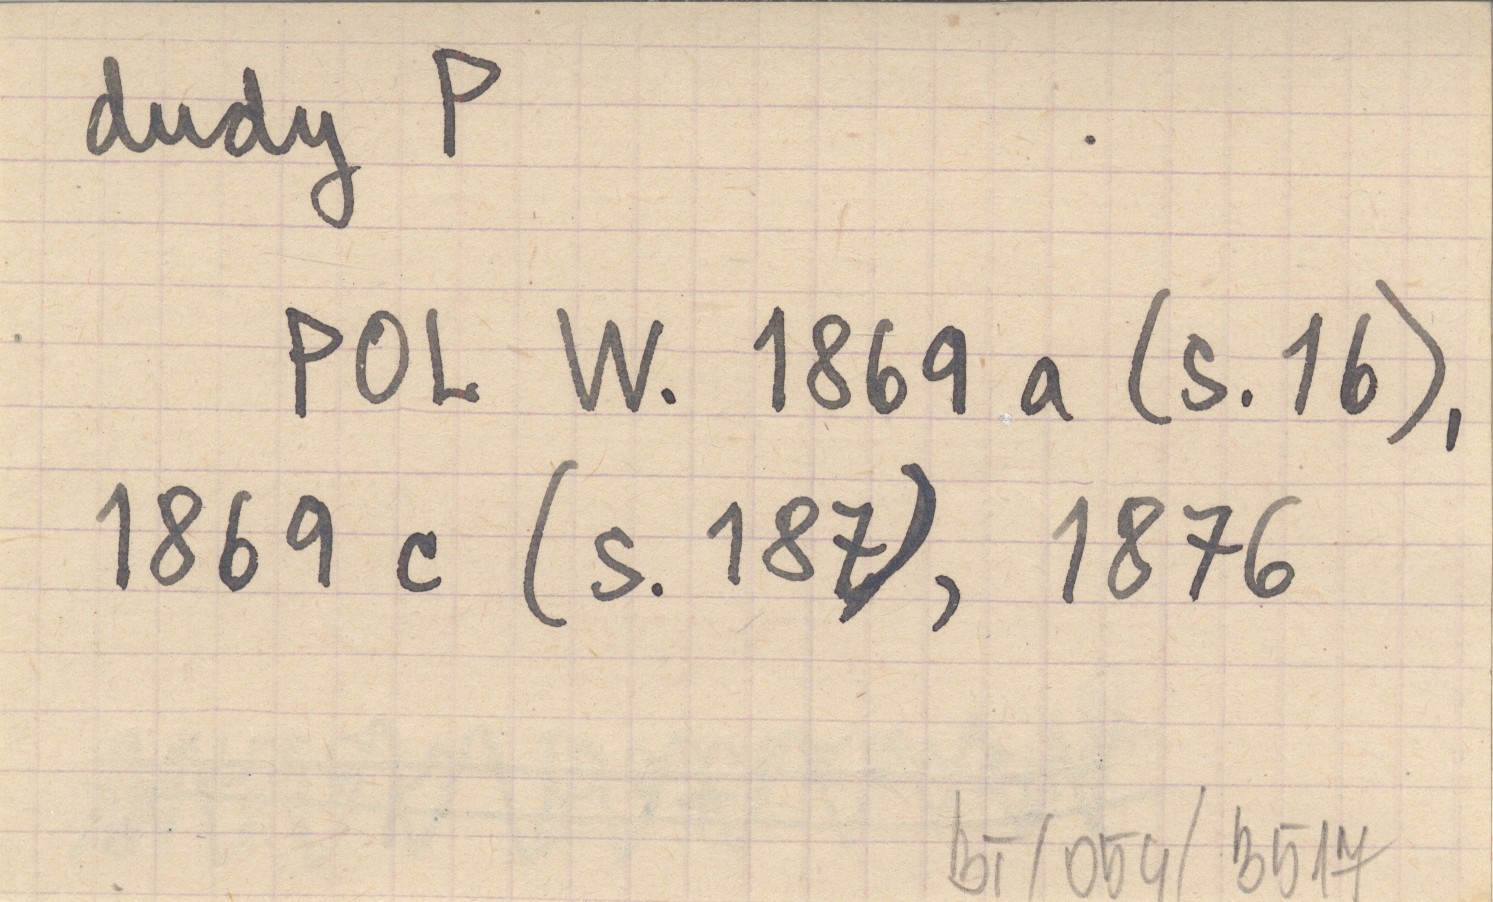 dudy P
POL W. 1869 a (s. 16),
1869 c (s. 187), 1876
BI/054/3517